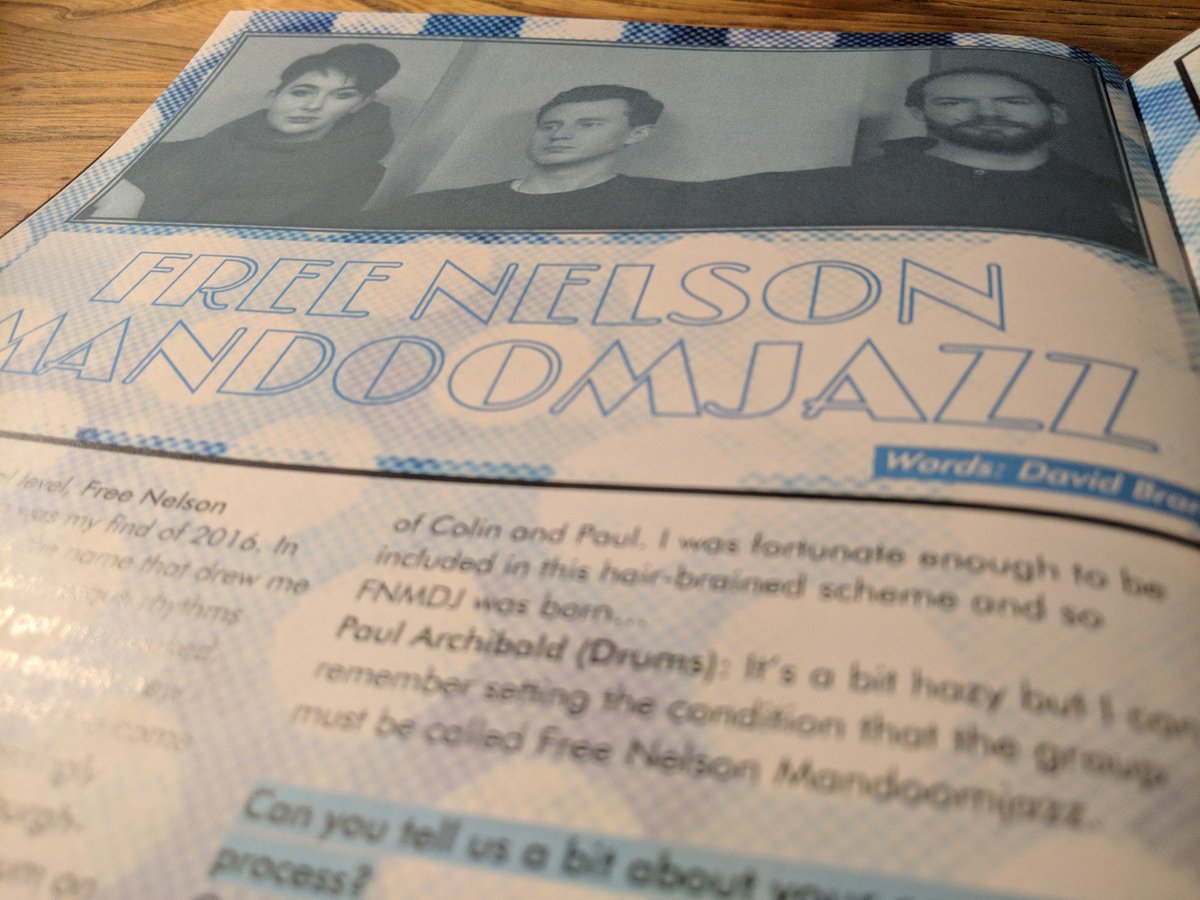 FREE NELSON
MANDOOMJAZZ
Words: David
level, Free Nelson
was my find of 2016. In
the name that drew me
rhythms
of Colin and Paul. I was fortunate enough to be
included in this hair-brained scheme and so
FNMDJ was born...
Paul Archibald (Drums): It's a bit hazy but I can
remember setting the condition that the group
must be called Free Nelson Mandoomjazz.
Can you tell us a bit about your
process?